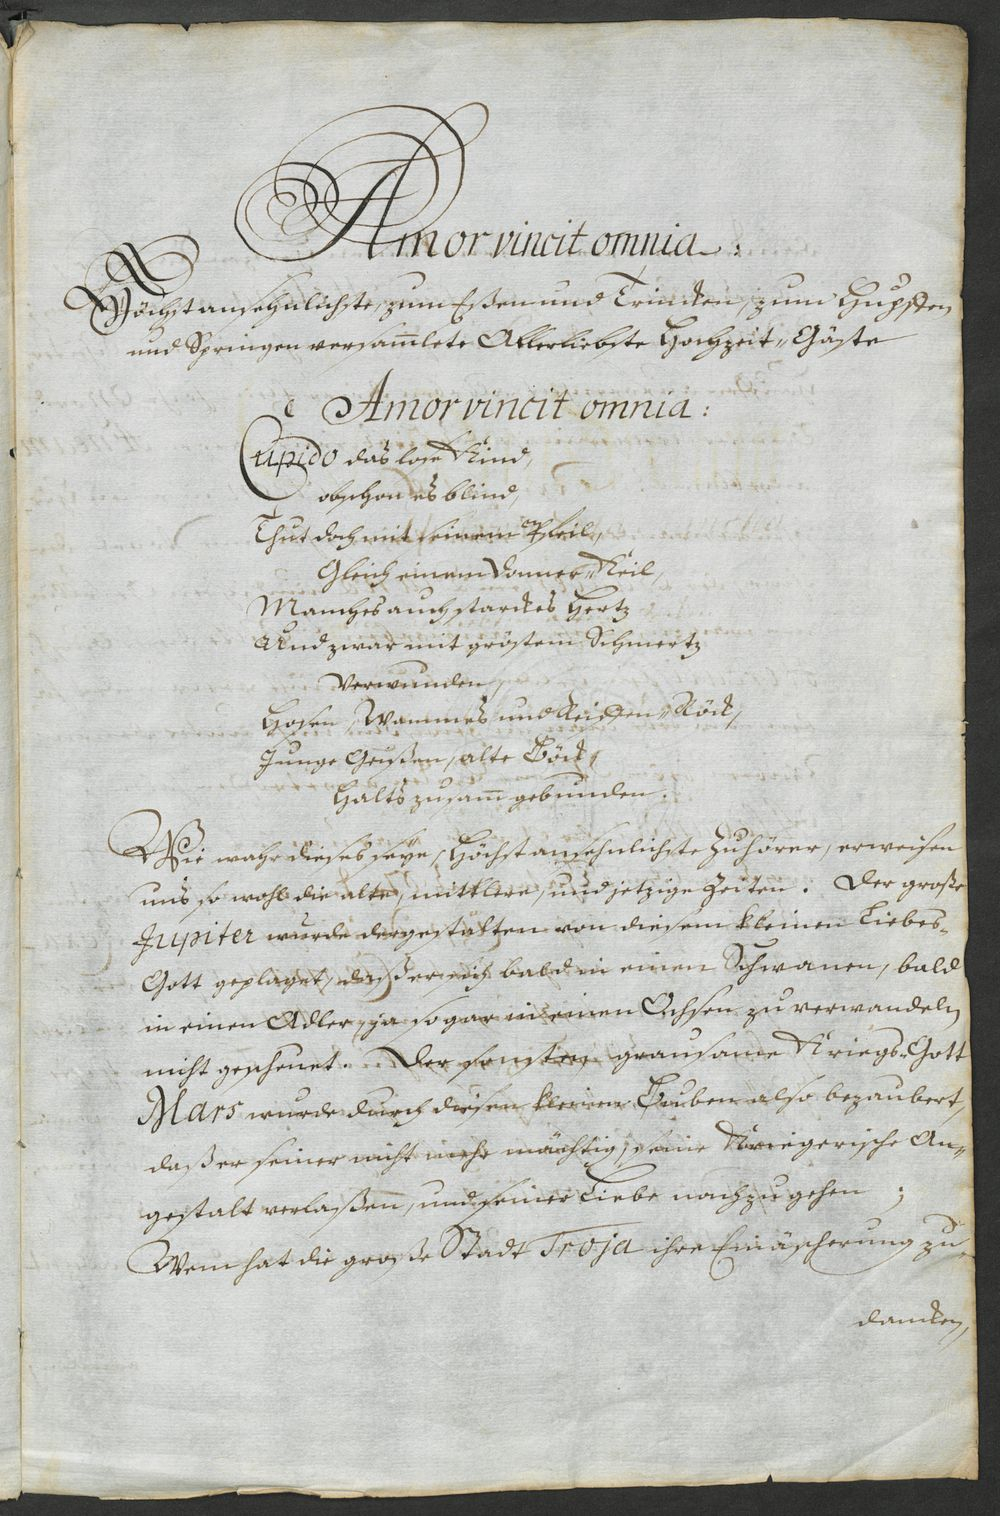 Amor vincit omnia:
Höchstansehnlichste, zum Eßen und Trincken, zum Hupffen
und Springen versam̅lete Allerliebste Hochzeit-Gäste
Amor vincit omnia:
Cupido das lose Kind,
obschon es blind,
Thut doch mit seinem Pfeil,
Gleich einem Donner-Keil,
Manches auch starckes Hertz
Und zwar mit gröstem Schmertz
Verwunden,
Hosen, Wammes und Röck,
Junge Geißen, alte Böck,
Halts zusam̅ gebunden.
Wie wahr dieses seye, Höchstansehnlichste Zuhörer, erweisen
uns so wohl die alte, mittlere, und jetzige Zeiten. Der große
Jupiter wurde dergestalten von diesem kleinen Liebes-
Gott geplaget, daß er sich bald in einen Schwanen, bald
in einen Adler, ja sogar in einen Ochsen zu verwandeln
nicht gescheuet. Der sonsten grausame Kriegs-Gott
Mars wurde durch diesen kleinen Buben also bezaubert,
daß er seiner nicht mehr mächtig, seine Kriegerische An-
gestalt verlaßen, und seiner Liebe nachzugehen;
Wem hat die große Stadt Troja ihre Einäscherung zu
dancken,